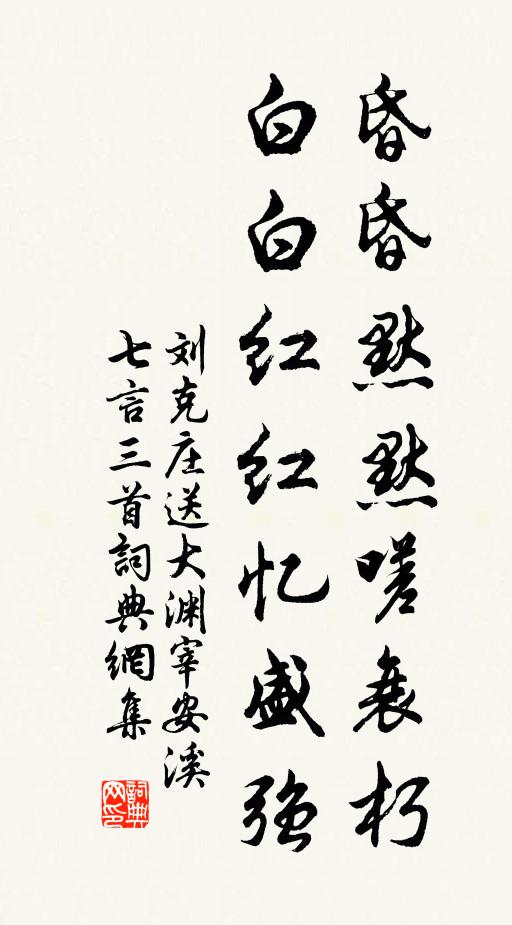 昏昏默默嗟衰朽
白白红红忆盛强
刘克庄送大渊宰安溪
七言三首詞典網集
詞典网印